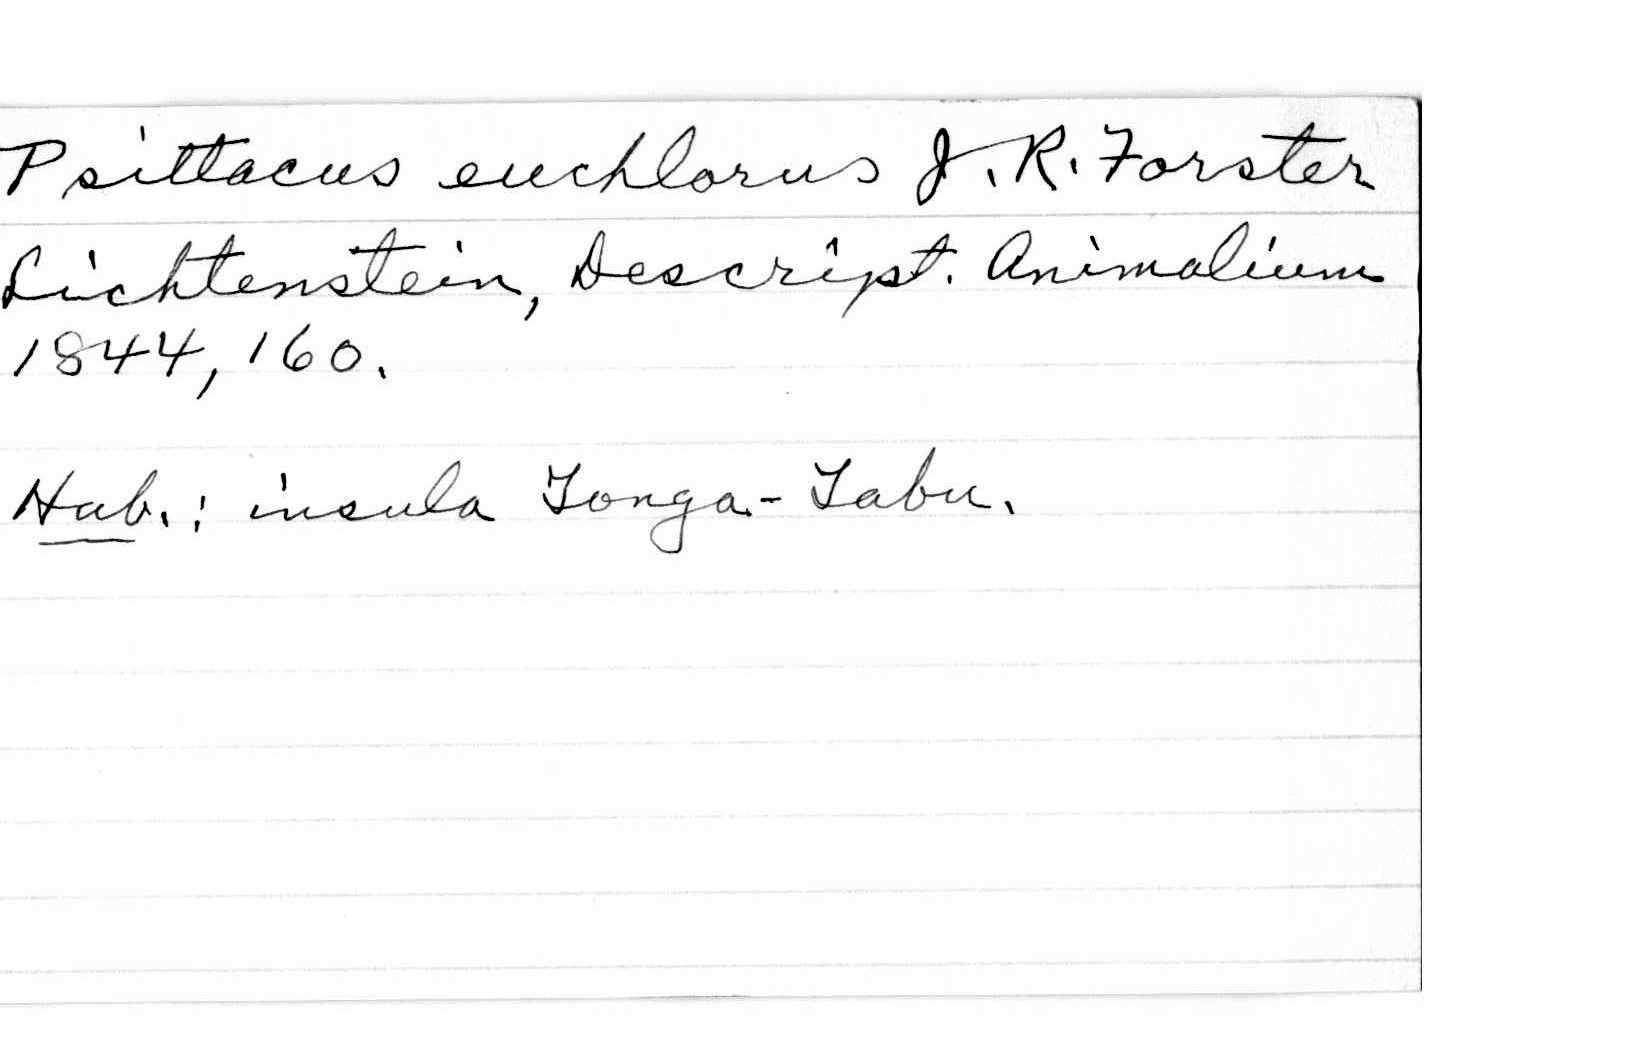 Psittacus euchlorus J. R. Forster
Lichtenstein, Descript. Animalium
1844, 160.
Hab.: insula Tonga-Tabu.